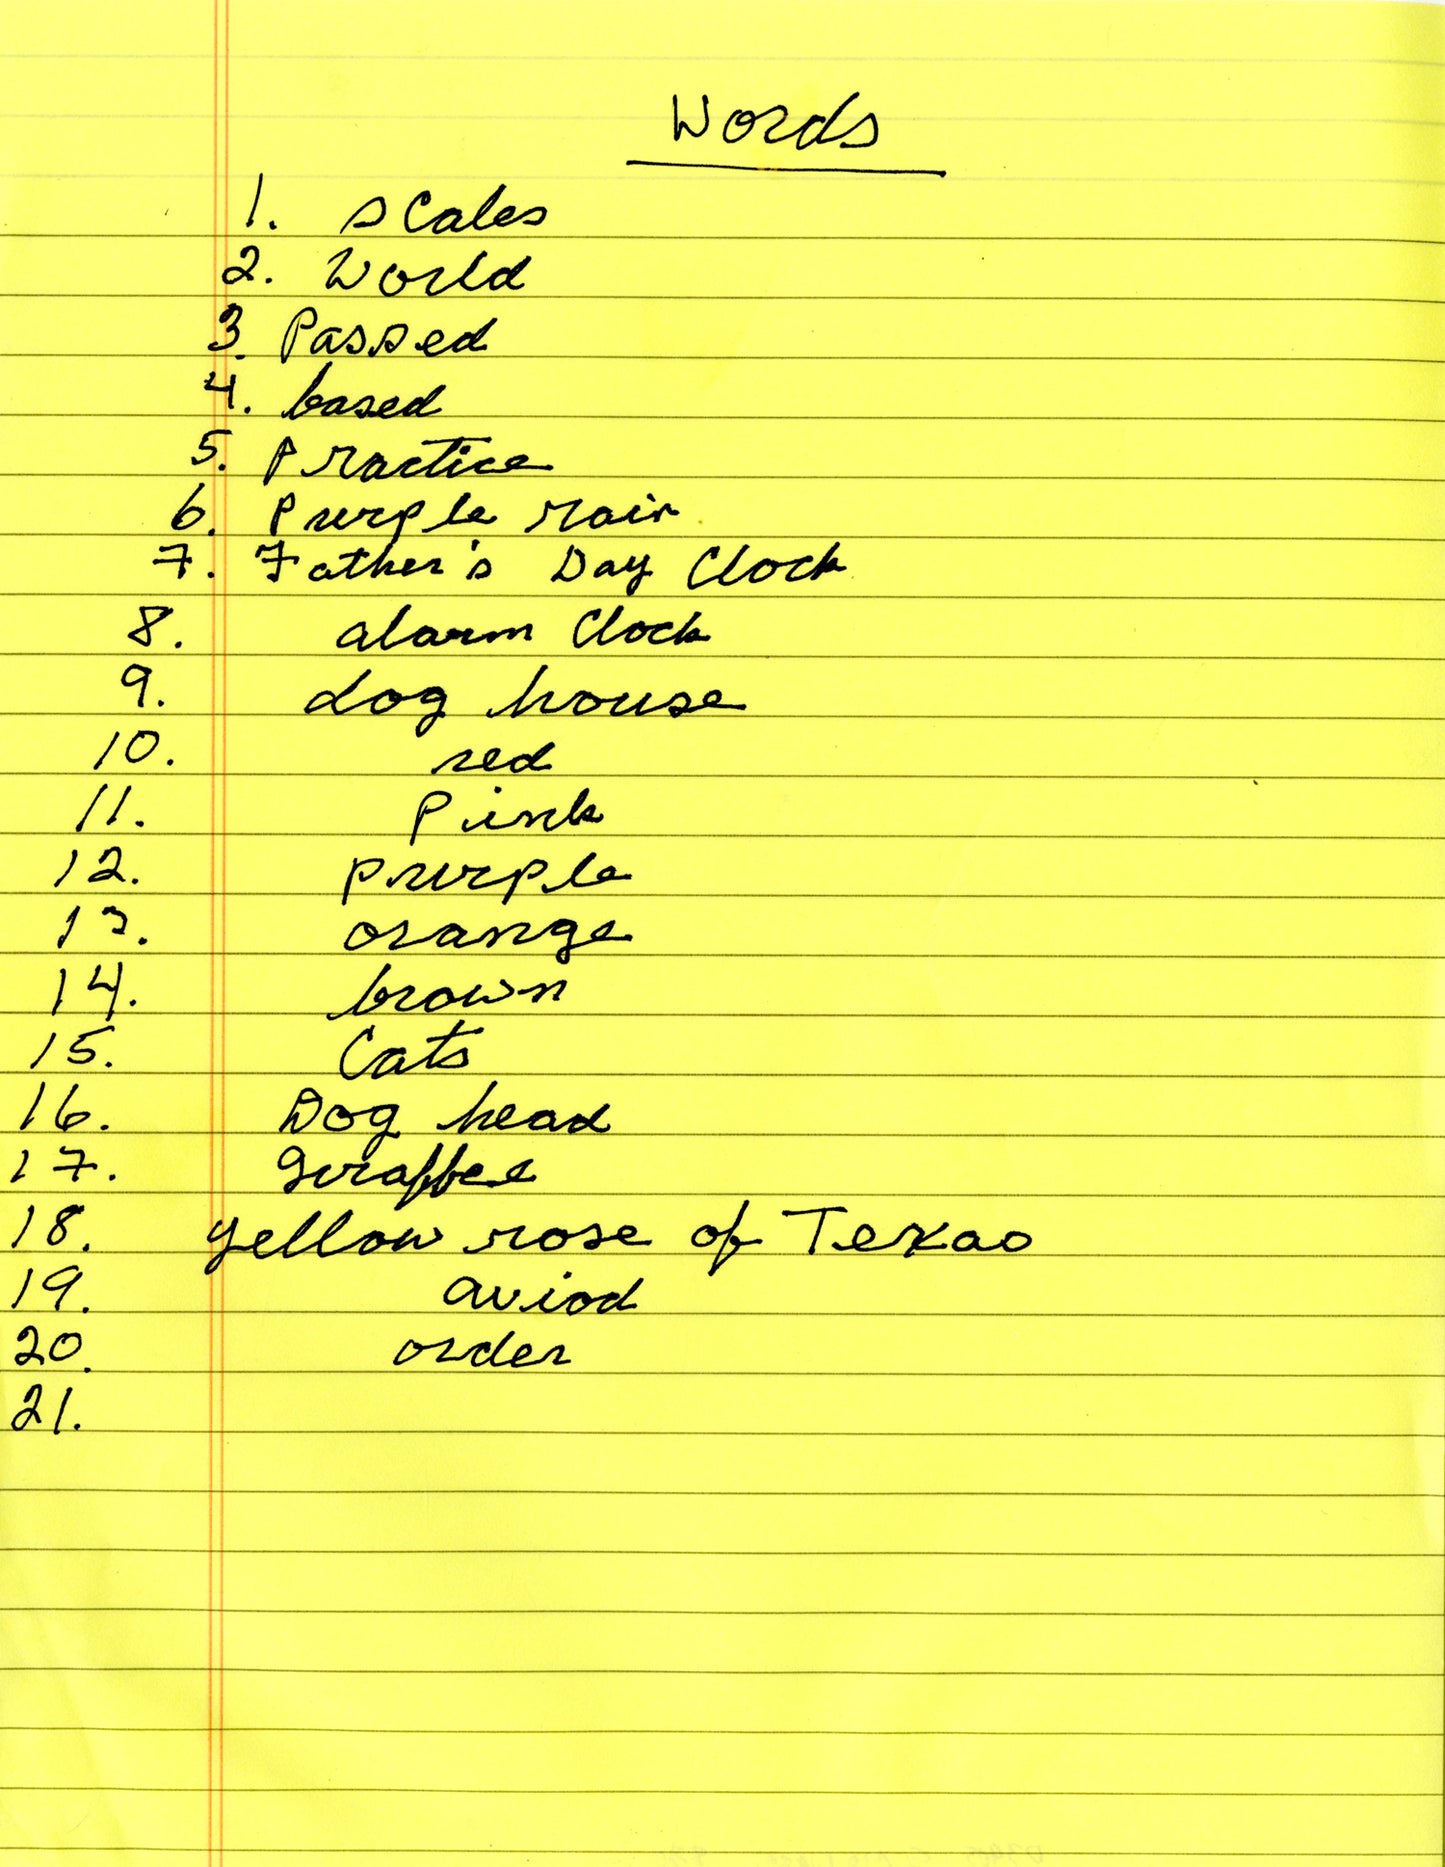 Words
1. scales
2. World
3. Passed
4. based
5. Practice
6. Purple rain
7. Father's Day Clock
8. alarm Clock
9. dog house
10. red
11. Pink
12. purple
13. orange
14. brown
15. Cats
16. Dog head
17. Giraffee
18. yellow rose of Texas
19. aviod
20. order
21.